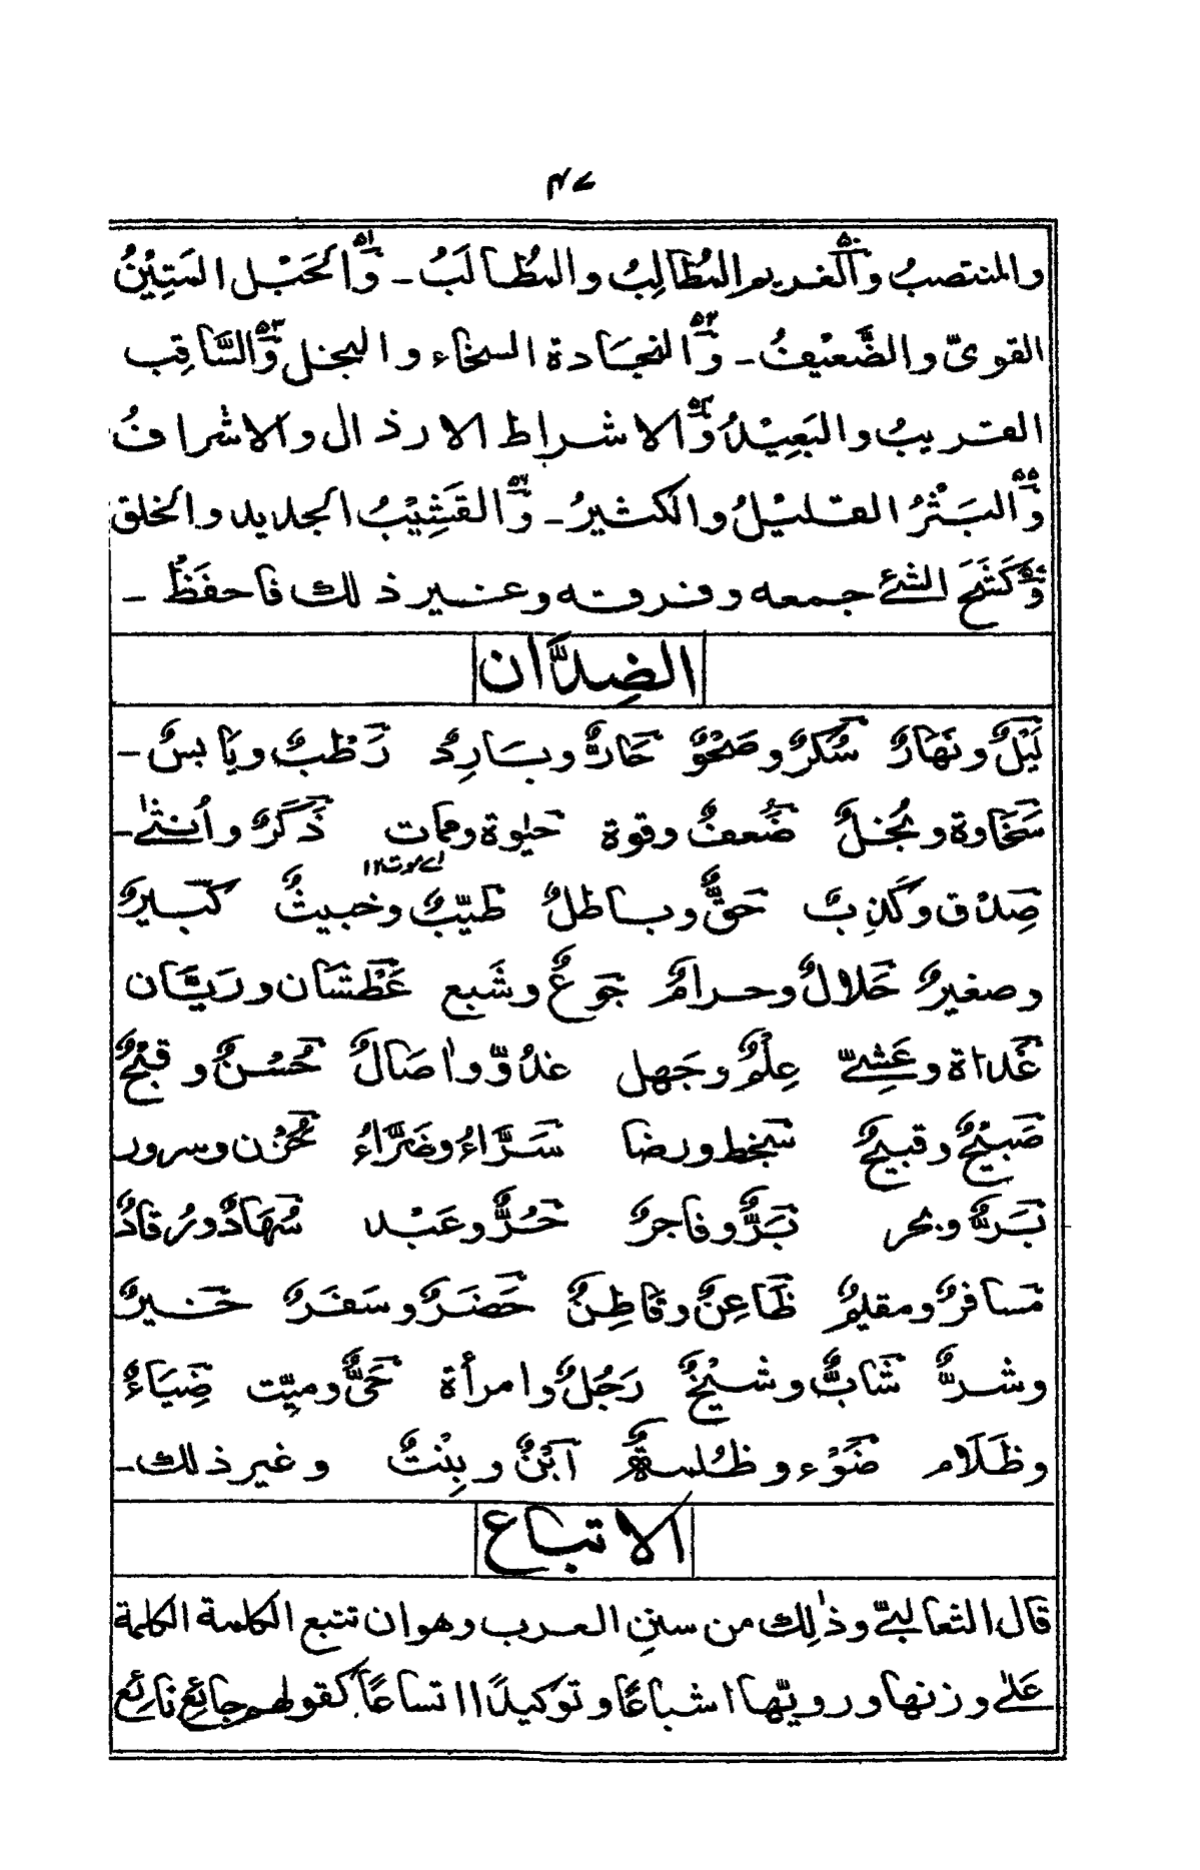 ۴۷
والمنتصبُ و۵۰الغريم المُطَالِبُ والمُطَالَبُ ـ و۵۱الحَبْل المَتِيْنُ
القویّ والضَّعيْفُ ـ و۵۲النجادة السخاء والبخل و۵۳السَّاقِب
القريبُ والبَعِيْدُ و۵۴الاشراط الارذال والاشرافُ
و۵۵البَثْرُ القليْلُ والكثيرُ ـ و۵۶القَشِيْبُ الجديد والخلق
و۵۷كَشَحَ الشئ جمعه وفرقه وغير ذلك فاحفَظْ ـ
الضِدَّان
لَيْلٌ ونَهَارٌ سُكرٌ وصَحْوٌ حَارٌّ وبَارِدٌ رَطْبٌ ويَابسٌ ـ
سَخَاوة وبُخلٌ ضُعفٌ وقوة حيٰوة وممات ذَكَرٌ واُنثىٰ ـ
اے موت ۱۲
صِدْق وكَذِبٌ حَقٌّ وباطلٌ طَيِّبٌ وخبيثٌ كَبيرٌ
وصغيرٌ حَلالٌ وحرامٌ جَوعٌ وشَبع عَطْشَان ورَيَّان
غَداة وعَشِیّ عِلْمٌ وجَهل غدُوّ واٰصَالٌ حُسْنٌ وقبْحٌ
صَبِيْحٌ وقبيحٌ سَخط ورضا سَرَّاءُ وضَرَّاءُ حُزْن وسرور
بَرٌّ وبحر بَرٌّ وفاجرٌ حُرٌّ وعَبْد سُهَادٌ ورُقادٌ
مسافرٌ ومقيمٌ ظَاعِنٌ وقَاطِنٌ حَضَرٌ وسَفَرٌ خَيرٌ
وشرٌّ شَابٌّ وشيْخٌ رَجُلٌ وامرأة حَیٌّ وميِّت ضِيَاءٌ
وظَلَام ضَوْء وظُلمةٌ اَبْنٌ وبِنْتٌ وغير ذلك ـ
الاتباع
قال الثعالبیّ وذٰلِك من سننِ العرب وهو ان تتبع الكلمة الكلمة
عَلىٰ وزنها ورويّها اشباعًا وتوكيدًا اتساعًا كقولهم جائعٌ نائعٌ